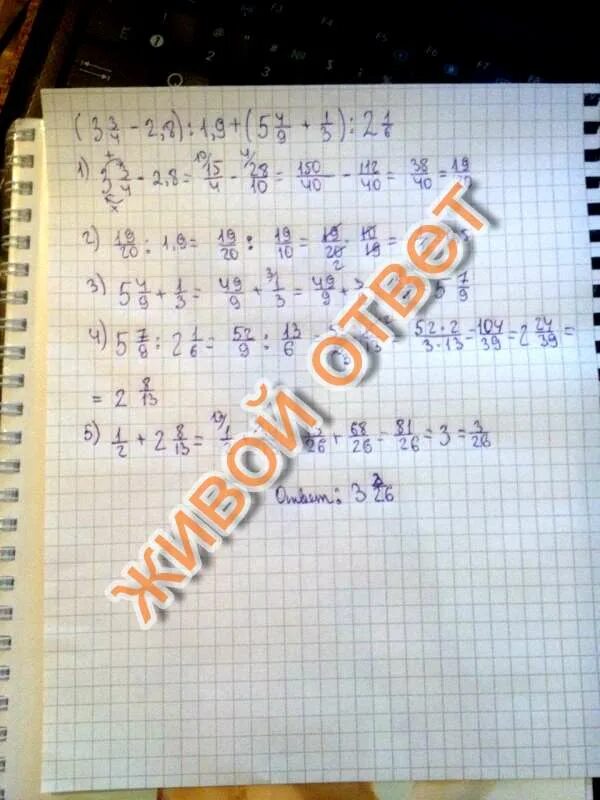 (3 3/4 - 2,8) : 1,9 + (5 4/9 + 1/3) : 2 1/6
1) 3 3/4 - 2,8 = 15/4 - 28/10 = 150/40 - 112/40 = 38/40 = 19/
2) 19/20 : 1,9 = 19/20 : 19/10 = 19/20 · 10/19 =
3) 5 4/9 + 1/3 = 49/9 + 1/3 = 49/9 + 5 7/9
4) 5 7/9 : 2 1/6 = 52/9 : 13/6 = 52·2/3·13 = 104/39 = 2 24/39 =
= 2 8/13
5) 1/2 + 2 8/13 = 1/ /26 + 68/26 = 81/26 = 3 = 3/26
Ответ: 3 3/26
ЖИВОЙ ОТВЕТ